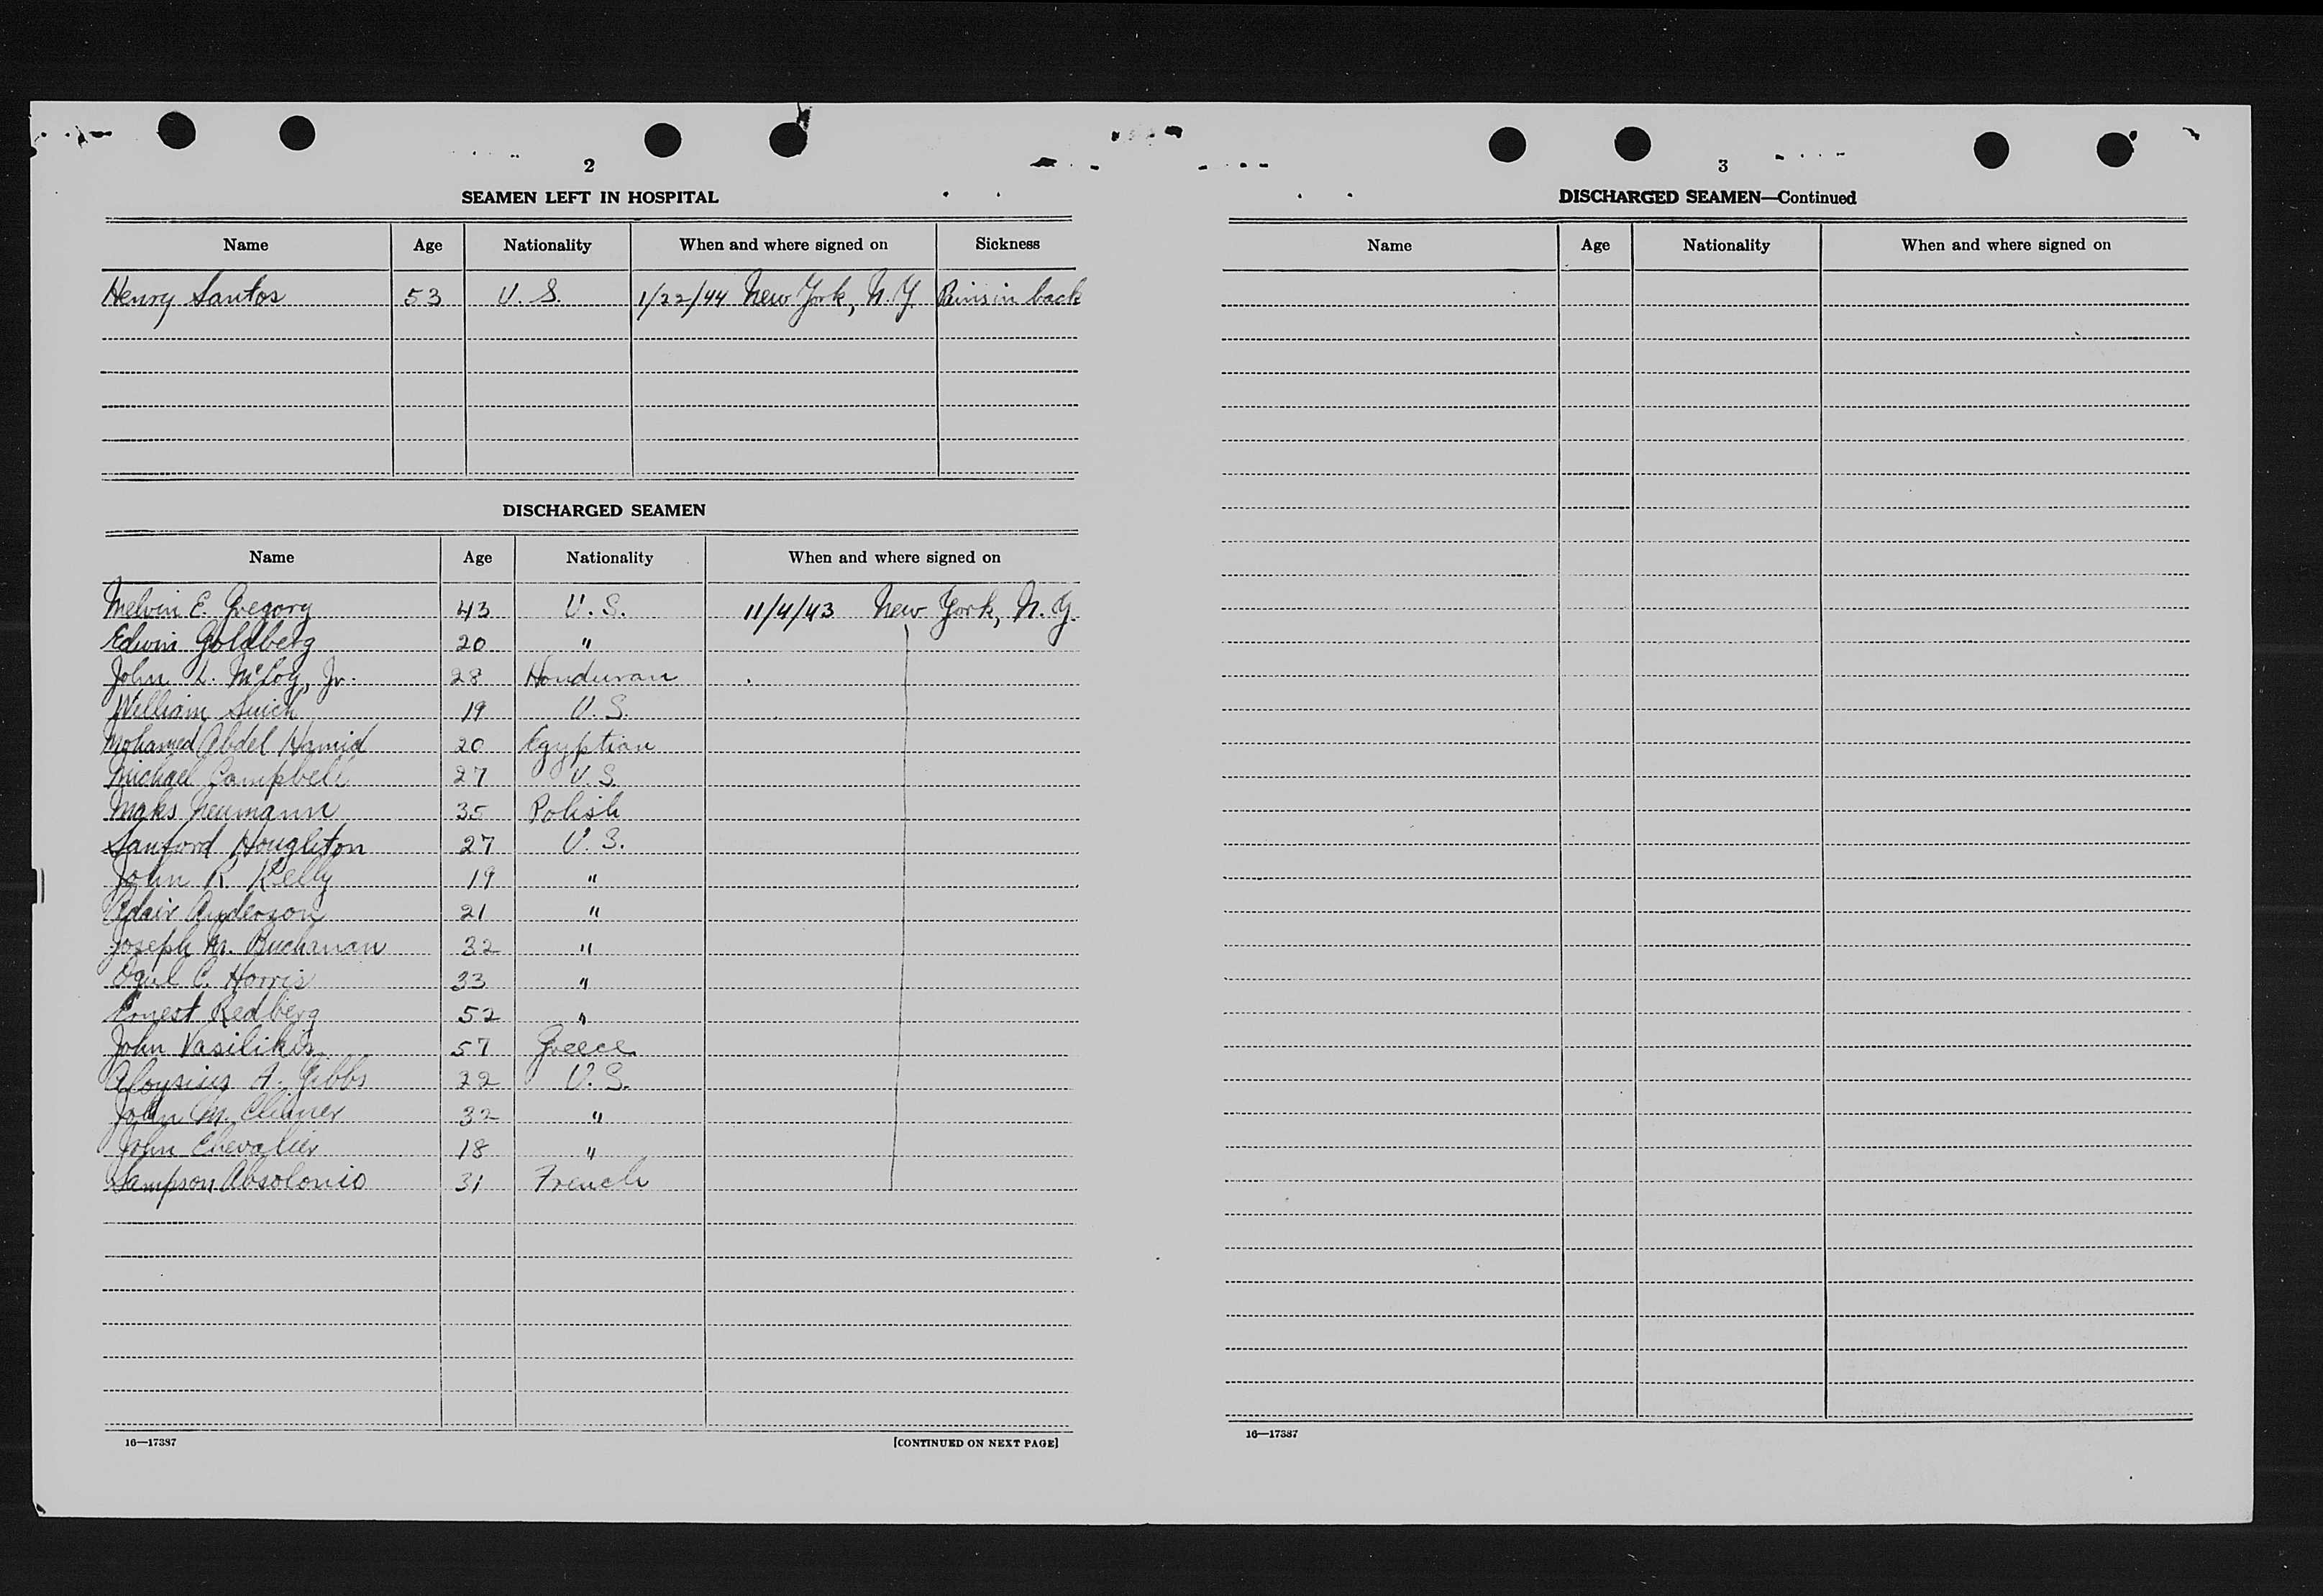 2
SEAMEN LEFT IN HOSPITAL
Name Age Nationality When and where signed on Sickness
Henry Santos 53 U. S. 1/22/44 New York, N. Y. Pains in back
DISCHARGED SEAMEN
Name Age Nationality When and where signed on
Melvin E. Gregory 43 U. S. 11/4/43 New York, N. Y.
Edwin Goldberg 20 "
John L. McCoy, Jr. 28 Honduran
William 19 U. S.
Mohamed Abdel Hamid 20 Egyptian
Michael Campbell 27 U. S.
Maks Neumann 35 Polish
Sanford Houghton 27 U. S.
John R. Kelly 19 "
Adair Anderson 21 "
Joseph M. Buchanan 32 "
C. Harris 33 "
Ernest Redberg 52 "
John Vasilikis 57 Greece
Aloysius A. Gibbs 22 U. S.
John M. 32 "
John Chevalier 18 "
Sampson Absolonio 31 French
16—17387 [CONTINUED ON NEXT PAGE]
3
DISCHARGED SEAMEN—Continued
Name Age Nationality When and where signed on
16—17387